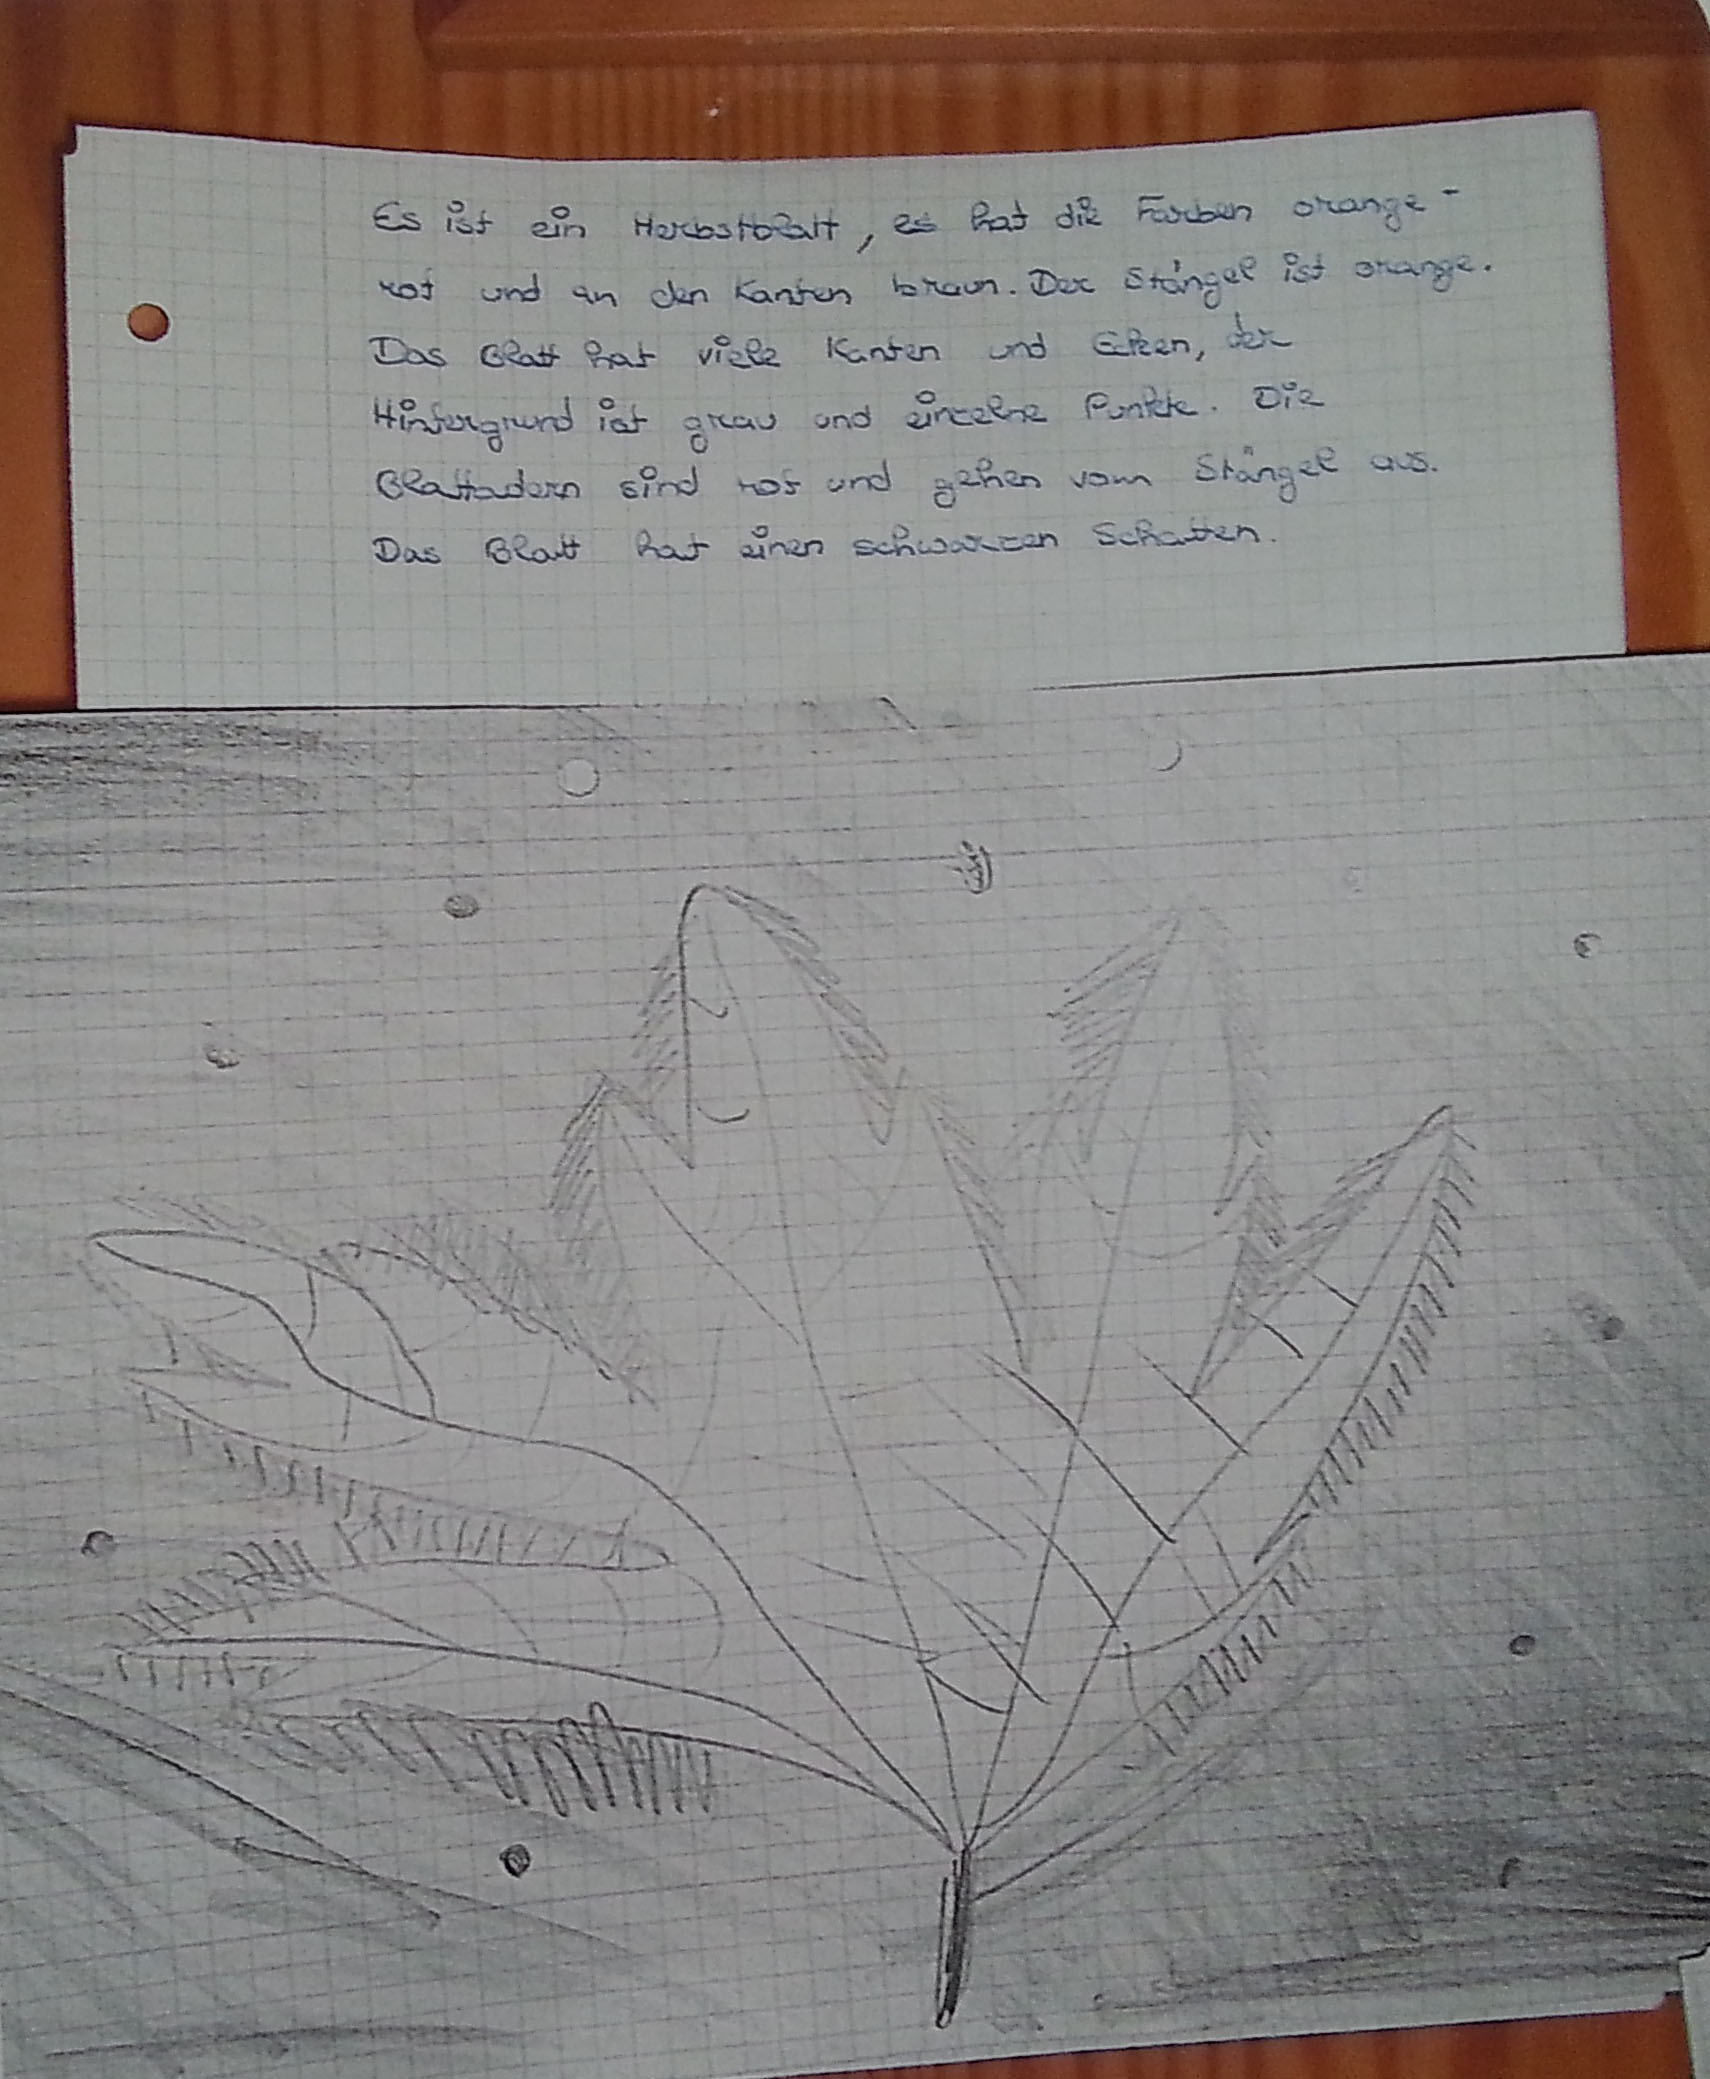 Es ist ein Herbstblatt, es hat die Farben orange-
rot und an den Kanten braun. Der Stängel ist orange.
Das Blatt hat viele Kanten und Ecken, der
Hintergrund ist grau und einzelne Punkte. Die
Blattadern sind rot und gehen vom Stängel aus.
Das Blatt hat einen schwarzen Schatten.